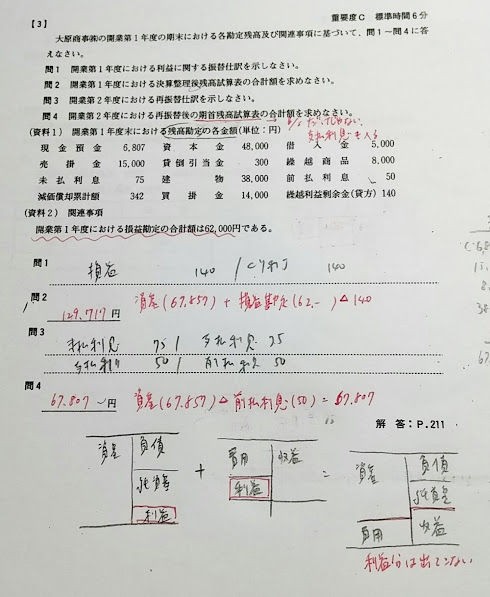 【3】
重要度C 標準時間6分
大原商事㈱の開業第1年度の期末における各勘定残高及び関連事項に基づいて、問1〜問4に答
えなさい。
問1 開業第1年度における利益に関する振替仕訳を示しなさい。
問2 開業第1年度における決算整理後残高試算表の合計額を求めなさい。
問3 開業第2年度における再振替仕訳を示しなさい。
問4 開業第2年度における再振替後の期首残高試算表の合計額を求めなさい。
支払利息も入る
(資料1) 開業第1年度末における残高勘定の各金額(単位:円)
現金預金 6,807 資本金 48,000 借入金 5,000
売掛金 15,000 貸倒引当金 300 繰越商品 8,000
未払利息 75 建物 38,000 前払利息 50
減価償却累計額 342 買掛金 14,000 繰越利益剰余金(貸方) 140
(資料2) 関連事項
開業第1年度における損益勘定の合計額は62,000円である。
問1
損益 140 / くりわJ 140
問2
129,717 円 資産(67.857) + 損益勘定(62.-) △140
問3
未払利息 75 / 支払利息 75
支払利息 50 / 前払利息 50
問4
67.807 円 資産(67.857) △ 前払利息(50) = 67.807
解答:P.211
資産 負債 純資産 利益 + 費用 利益 収益 = 資産 費用 負債 純資産 収益
利益分は出てこない